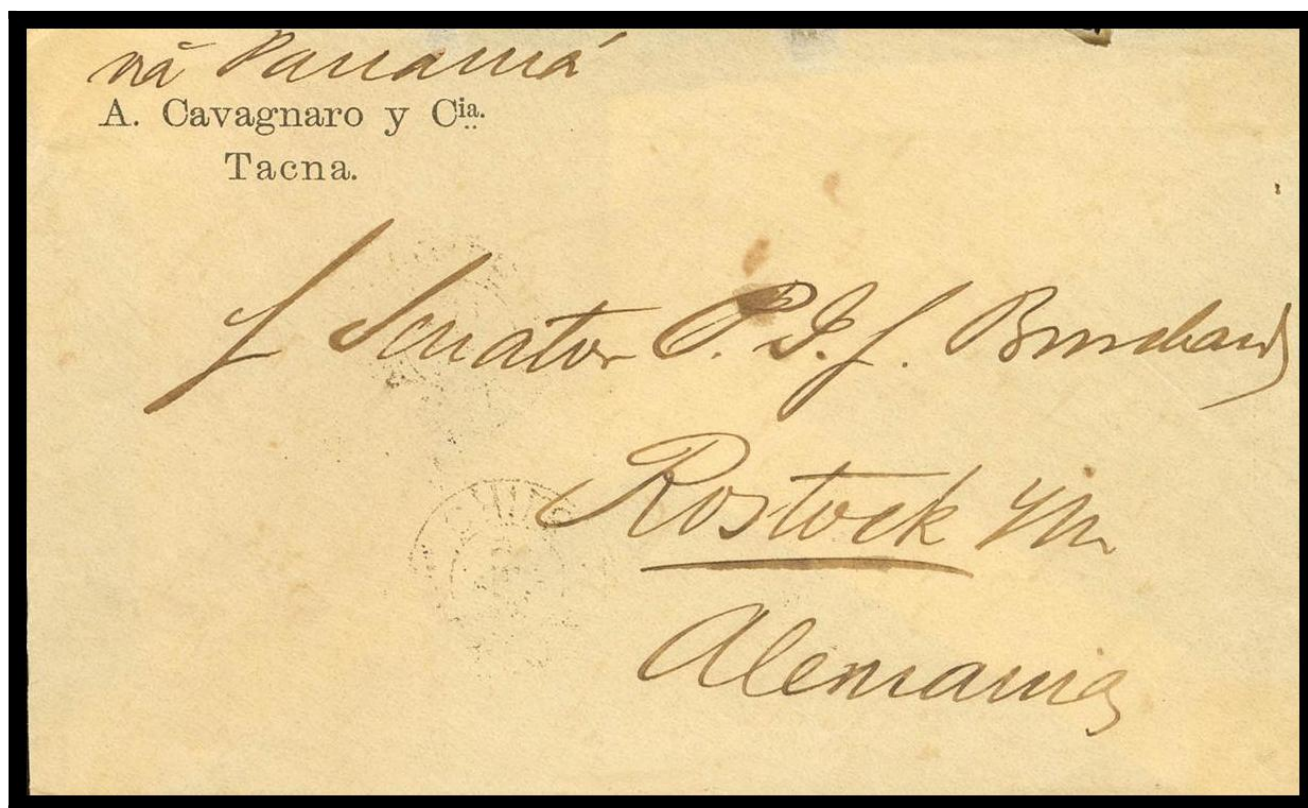 viâ Panamá
A. Cavagnaro y Cia.
Tacna.
Senator P. J. f. Burchard
Rostock i/m
Alemania